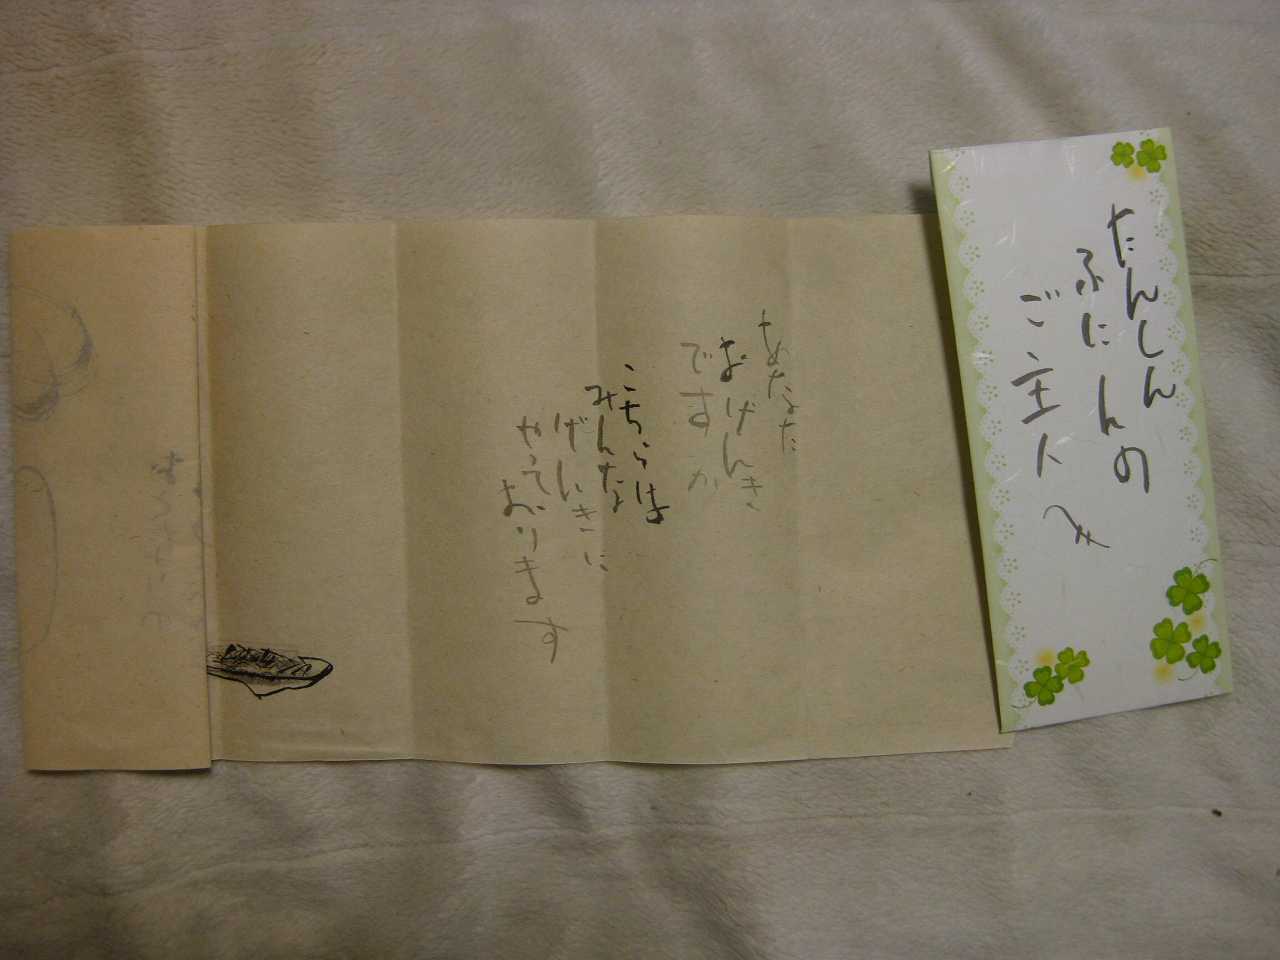 たんしん
ふにんの
ご主人へ
あなた
おげんき
ですか
こちらは
みんな
げんきに
やって
おります